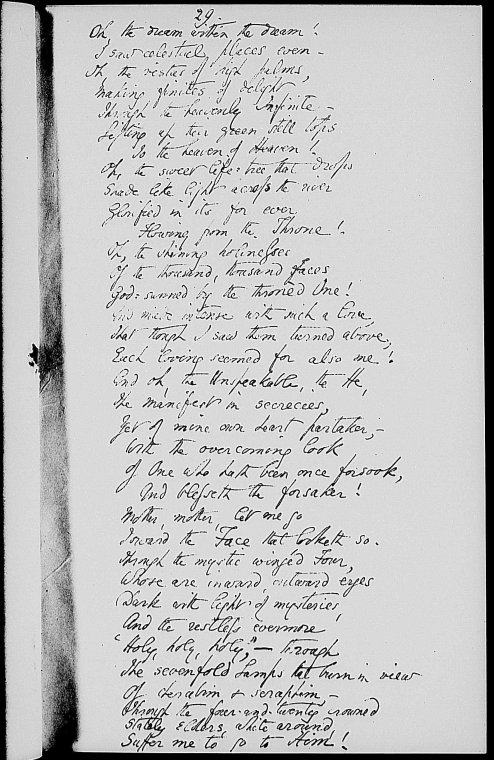 29.
Oh, the dream within the dream!
I saw celestial places even -
Oh, the vistas of high palms,
Making finites of delight
Through the heavenly Infinite -
Lifting up their green still tops
To the heaven of Heaven!
Oh, the sweet life-tree that drops
Shade like light across the river
Glorified in its for ever
Flowing from the Throne!
Oh, the shining holinesses
Of the thousand, thousand faces
God-sunned by the throned One!
And made intense with such a love,
That though I saw them turned above,
Each loving seemed for also me!
And oh, the Unspeakable, the He,
The manifest in secrecies,
Yet of mine own heart partaker,-
With the overcoming look
Of One who hath been once forsook,
And blesseth the forsaker!
Mother, mother, let me go
Toward the Face that looketh so.
Through the mystic wingèd Four,
Whose are inward, outward eyes
Dark with light of mysteries,
And the restless evermore
"Holy, holy, holy," - through
The sevenfold Lamps that burn in view
Of cherubim & seraphim -
Through the four-and-twenty crowned
Stately Elders, white around,
Suffer me to go to Him!